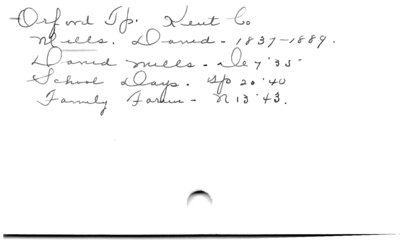 Orford Tp. Kent Co
Mills. David - 1837-1889.
David Mills - De 7 '35
School Days. Sp 20 '40
Family Farm - N 13 '43.